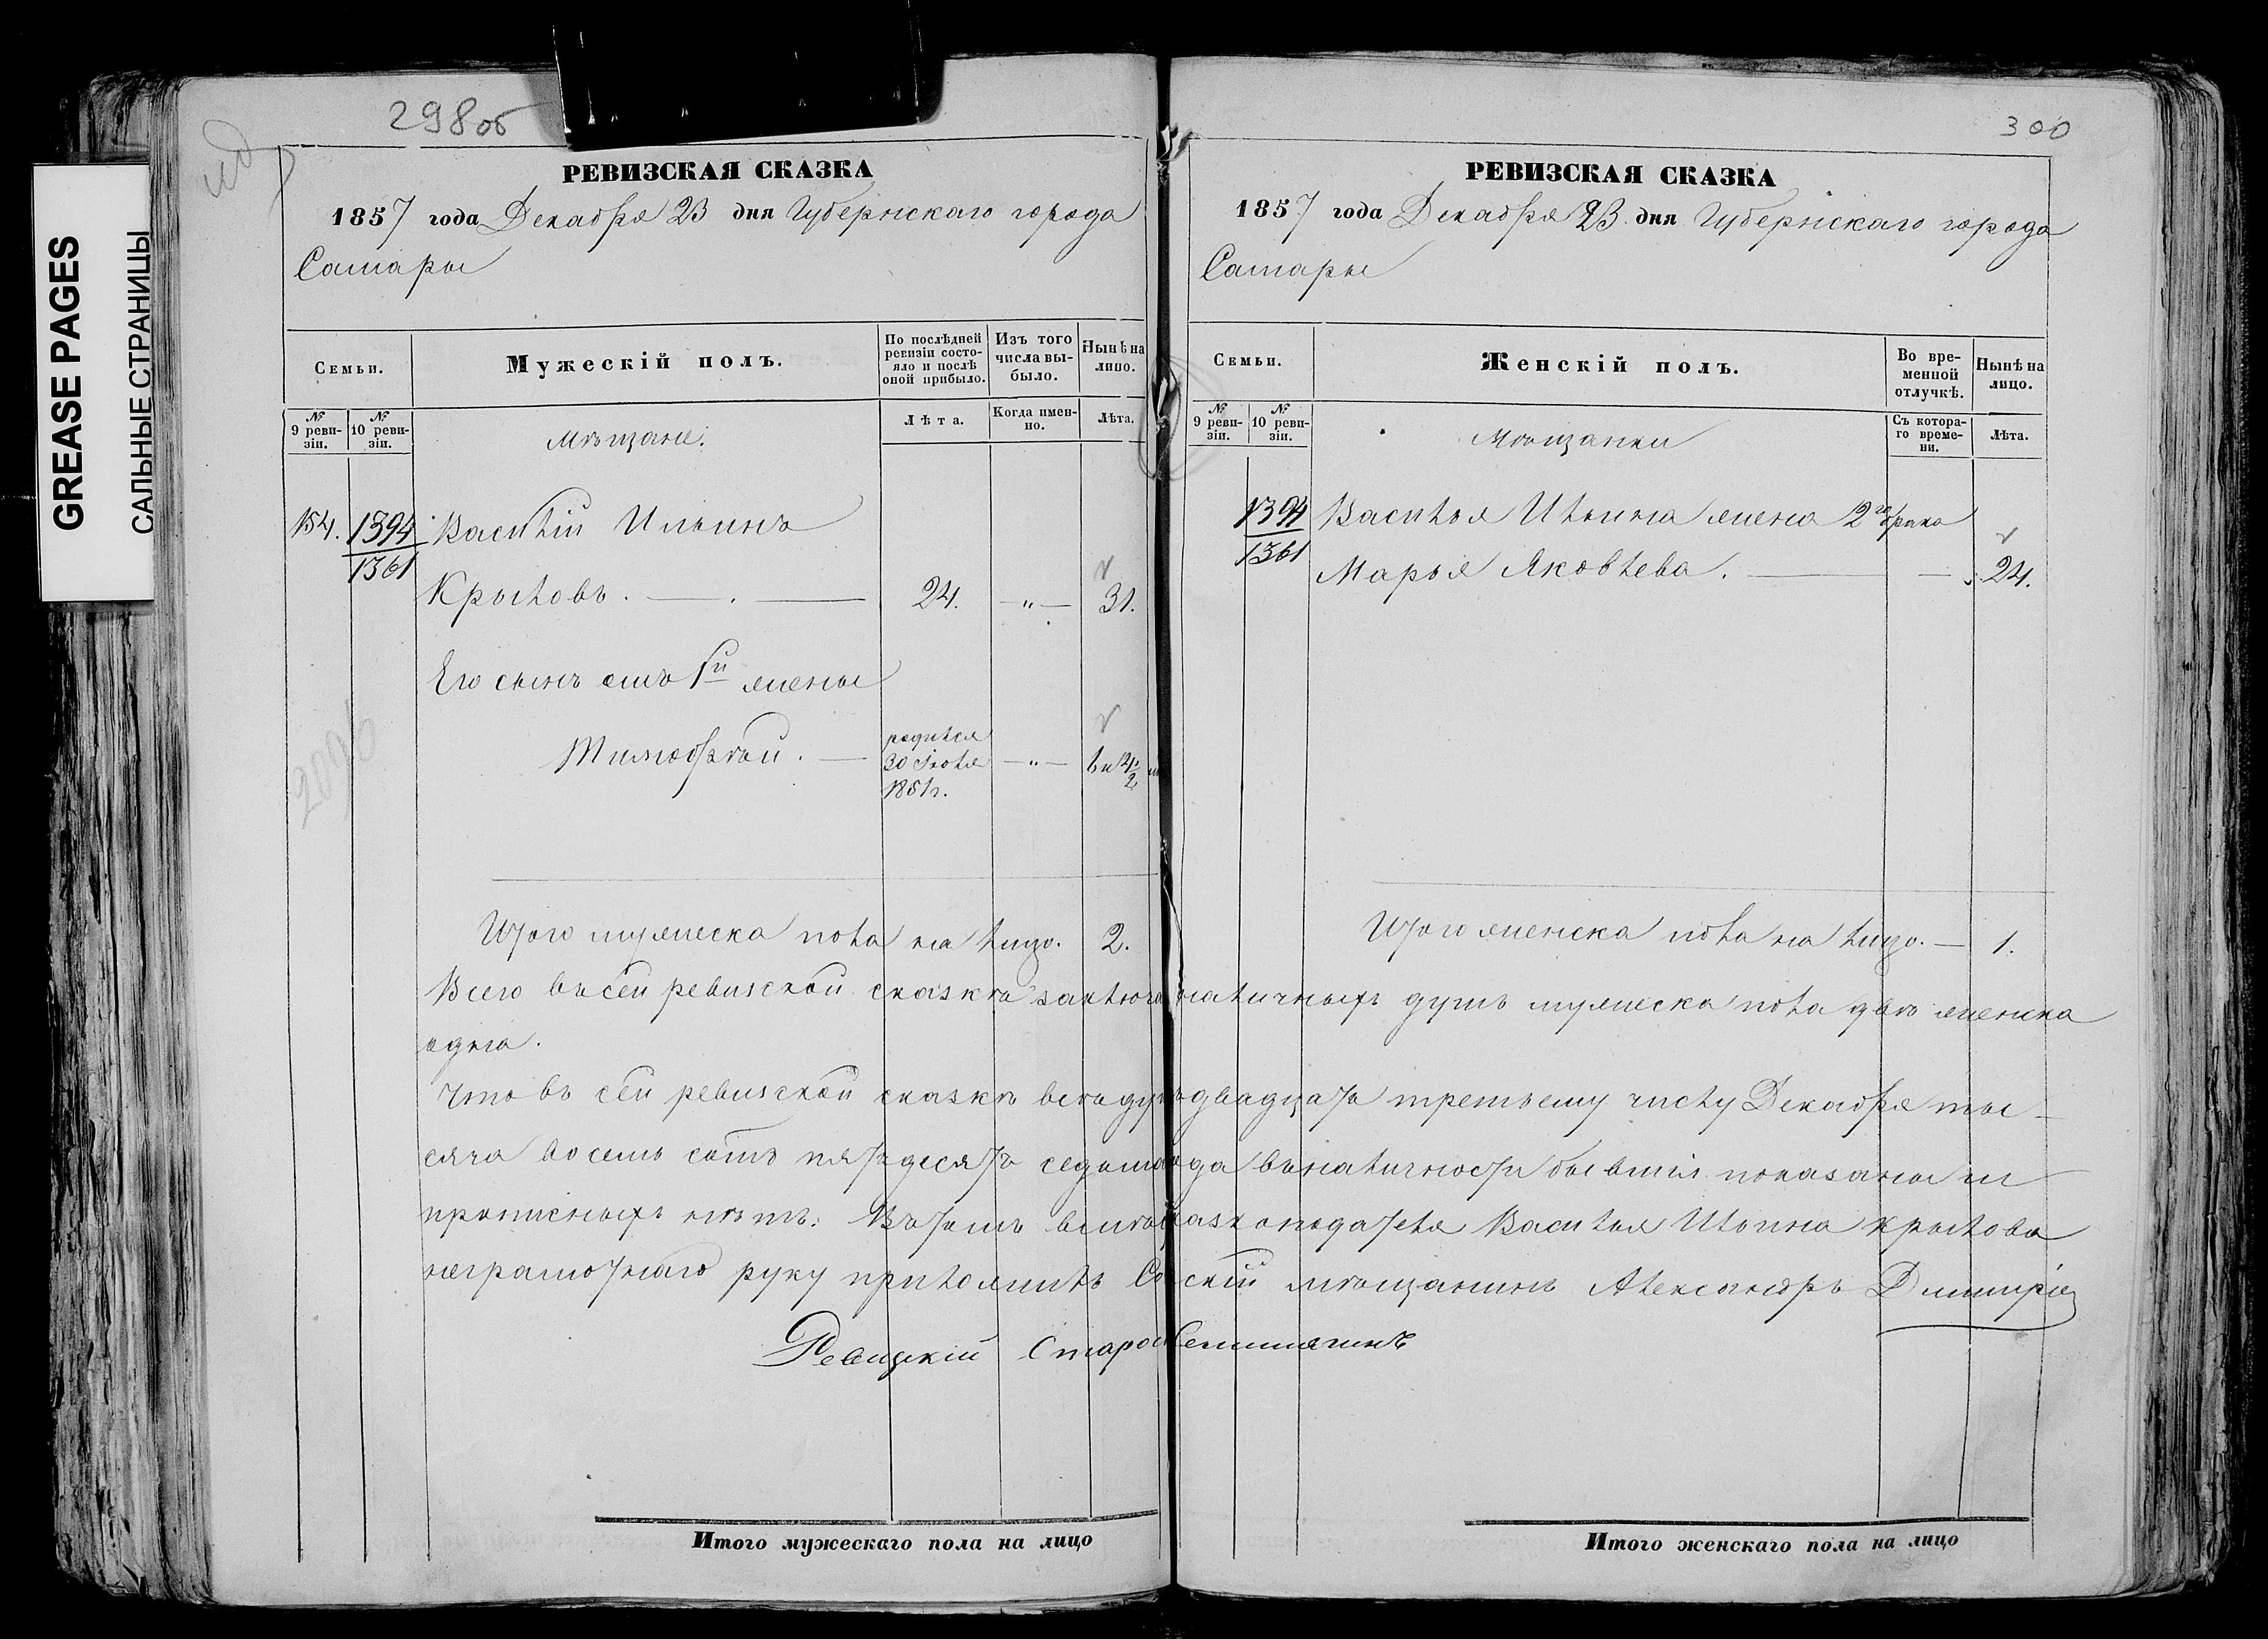 GREASE PAGES
САЛЬНЫЕ СТРАНИЦЫ
298об
РЕВИЗСКАЯ СКАЗКА
1857 года Декабря 23 дня Губернскаго города
Самары
Семьи.
Мужескій полъ.
По послѣдней ревизіи состояло и послѣ оной прибыло.
Изъ того числа выбыло.
Нынѣ на лицо.
№ 9 ревизіи.
№ 10 ревизіи.
Мѣщане.
Лѣта.
Когда именно.
Лѣта.
154. 1394 Василій Ильинъ
1361
Крыловъ. 24. — " — 31.
Его сынъ отъ 1й жены
Тимофѣй. родился 30 Іюля 1851 г. — " —
2096
Итого мужеска пола на лицо. 2.
300
РЕВИЗСКАЯ СКАЗКА
1857 года Декабря 23 дня Губернскаго города
Самары
Семьи.
Женскій полъ.
Во временной отлучкѣ.
Нынѣ на лицо.
№ 9 ревизіи.
№ 10 ревизіи.
Мѣщанки
Съ котораго времени.
Лѣта.
1394 Василья Ильина жена 2го брака
1361
Марья Яковлева. — 24.
Итого женска пола на лицо. — 1.
Всего въ сей ревизской сказкѣ заключ наличныхъ душъ мужеска пола двѣ женска
одна.
Что въ сей ревизской сказкѣ всѣ ду двадцать третьему числу Декабря ты-
сяча восемь сотъ пятьдесятъ седьма ода въ наличности бывшія показаны и
прописныхъ нѣтъ. Въ томъ вмѣсто сказкоподателя Василья Ильина Крылова
неграмотнаго руку приложилъ Са скій мѣщанинъ Александръ Дмитріе
Итого мужескаго пола на лицо
Итого женскаго пола на лицо